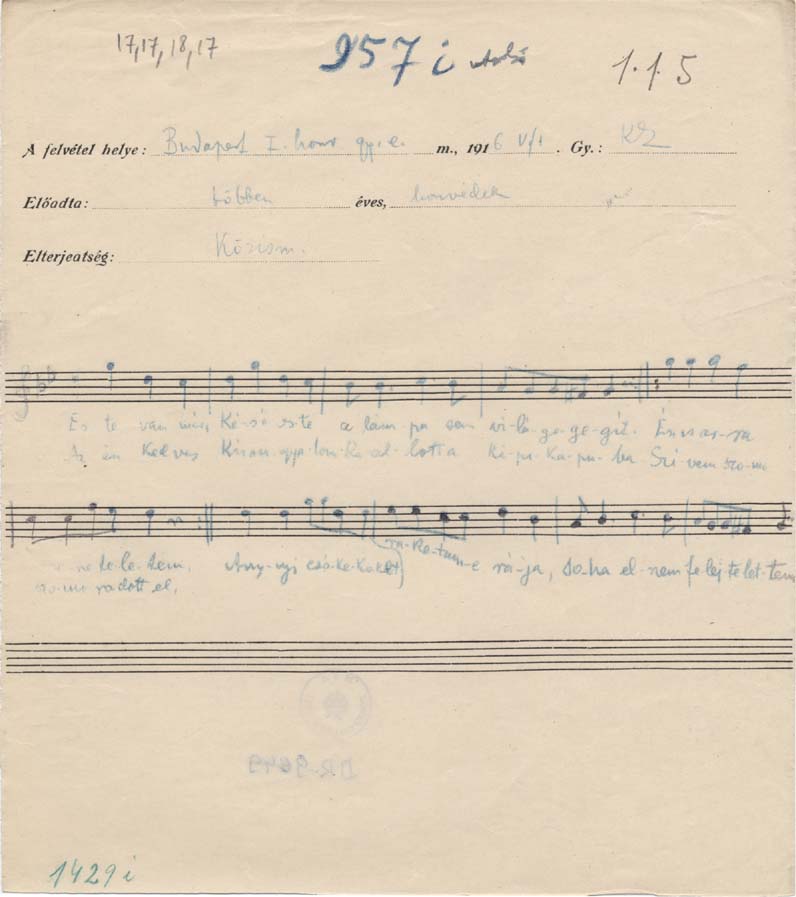 17,17,18,17
957 i
1.1.5
A felvétel helye: Budapest I. honv gy. e. m., 1916 V/1. Gy.: KZ
Előadta: többen éves, honvédek
Elterjeatség: Közism.
És te van már, Ké-ső es-te a lám-pa sem vi-lá-ga-ge-gít.
Az én ked-ves Kis an-gya-lom ki al-lott a Ka-pu-ba Szi-vem szo-mo
te-le-tem, Any-nyi csó-ko-kat ra-kot-tam-e rá-ja, so-ha el-nem fe-lej-tet-tem
szo-mo radott el,
DR-9649
1429 i